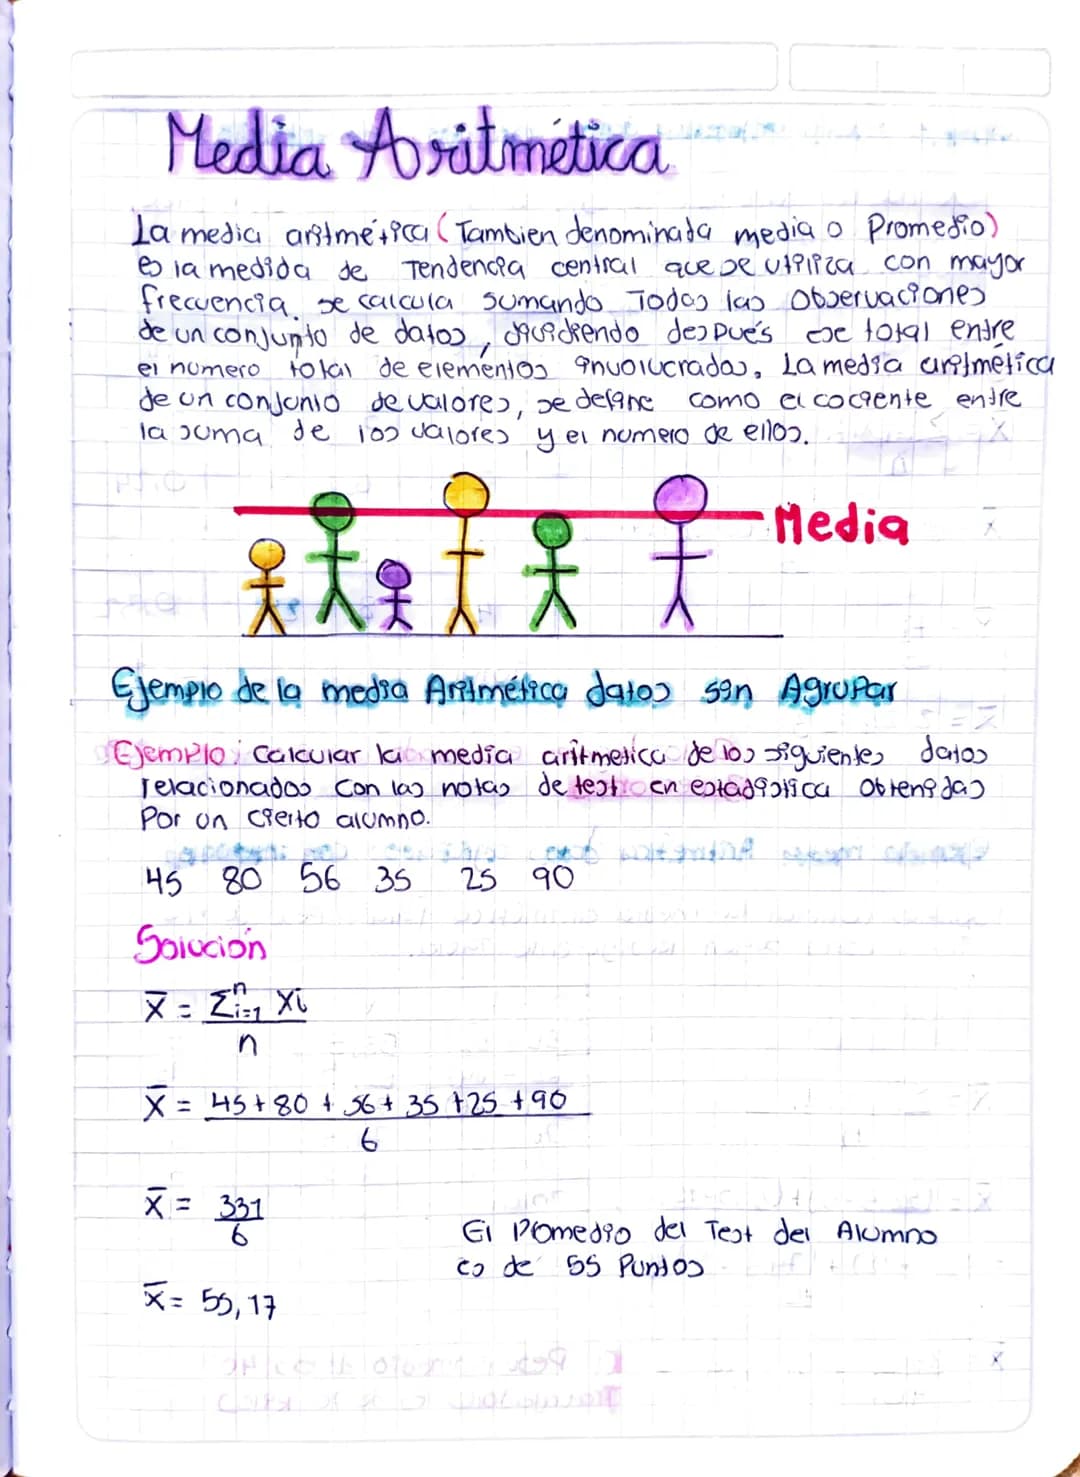 Media Aritmética
La media aritmética (Tambien denominada media o Promedio)
es la medida de Tendencia central que se utiliza con mayor
frecuencia. se calcula sumando Todas las Observaciones
de un conjunto de datos, dividiendo después ese total entre
el numero total de elementos involucrados. La media aritmética
de un conjunto de valores, se define como el cociente entre
la suma de los valores y el numero de ellos.
Media
Ejemplo de la media Aritmética datos sin Agrupar
Ejemplo: Calcular la media aritmetica de los siguientes datos
relacionados con las notas de test en estadística Obtenidas
Por un cierto alumno.
45 80 56 35 25 90
Solución
x̄ = Σⁿᵢ₌₁ Xi
n
x̄ = 45+80+56+35+25+90
6
x̄ = 331
6
El Promedio del Test del Alumno
es de 55 Puntos
x̄ = 55,17